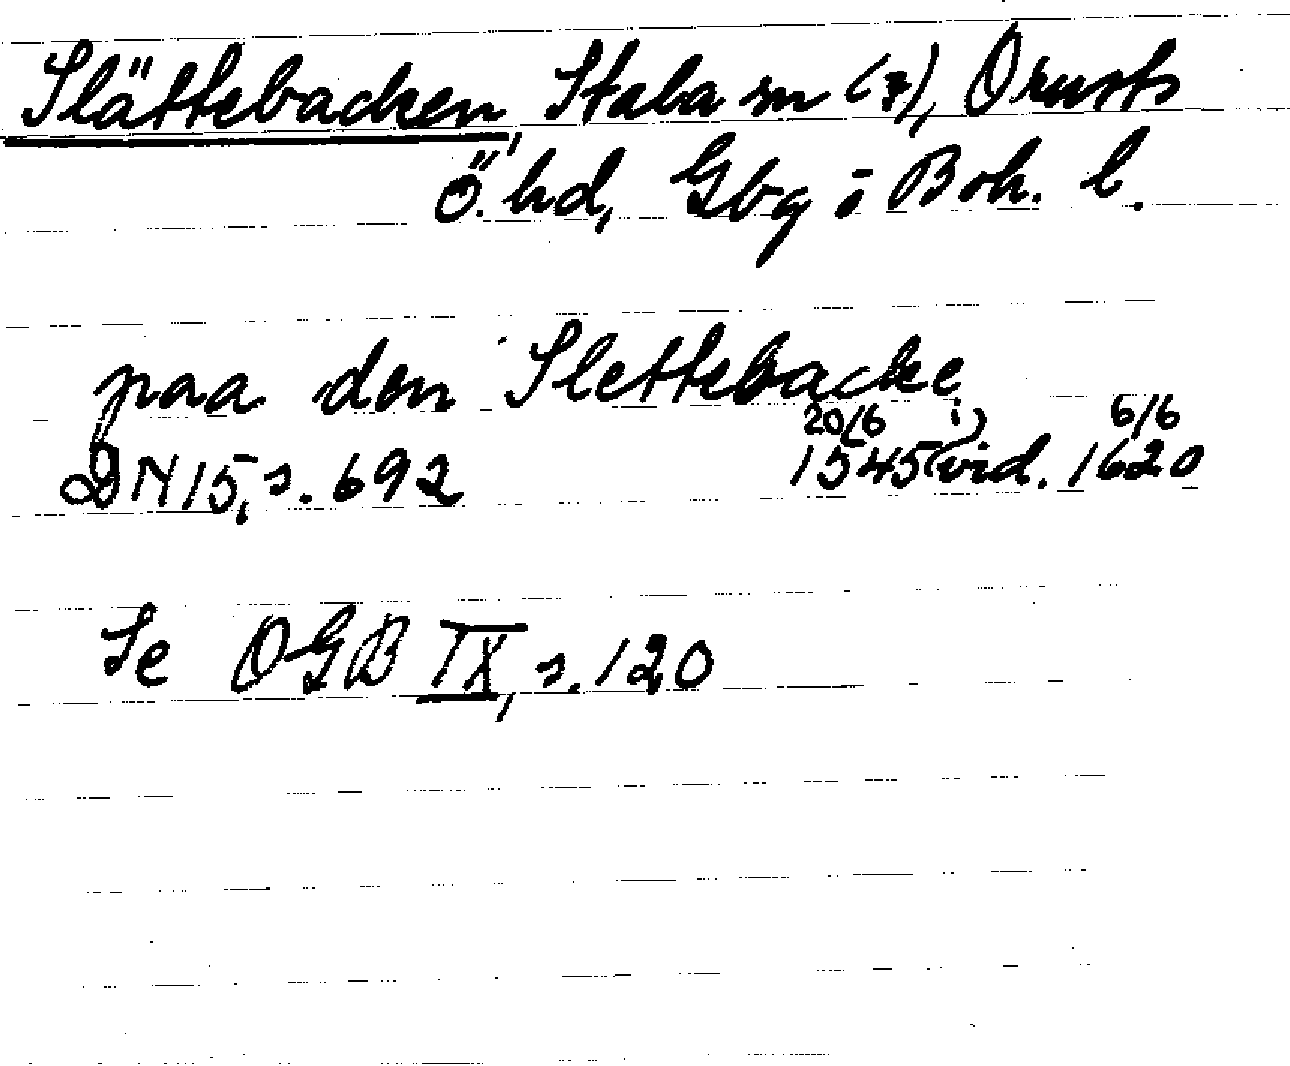 Slättebacken, Stala sn (7), Orusts
ö. hd, Gbg i Boh. l.
paa den Slettebacke
20/6 6/6
DN 15, s. 692 1545 i vid. 1620
Se OGB IX, s. 120